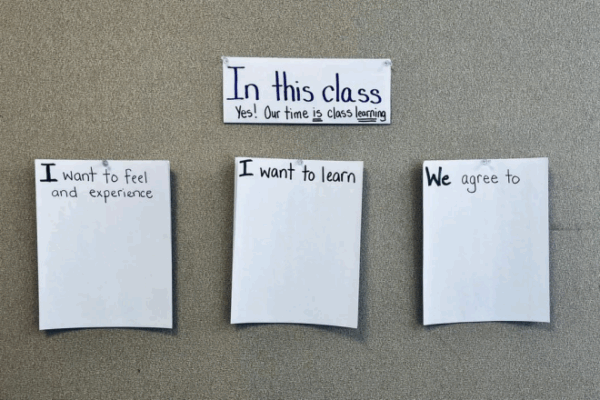 In this class
Yes! Our time is class learning
I want to feel
and experience
I want to learn
We agree to